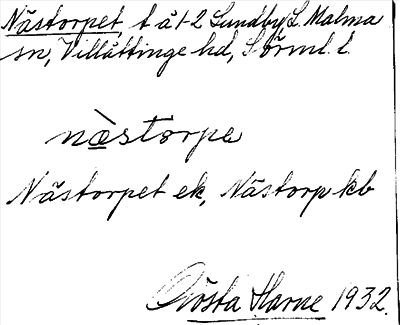 Nästorpet, t å 1-2 Sundby, L. Malma
sn, Villåttinge hd, Sörml. l.
nästorpe
Nästorpet ek, Nästorp kb
Gösta Harne 1932.